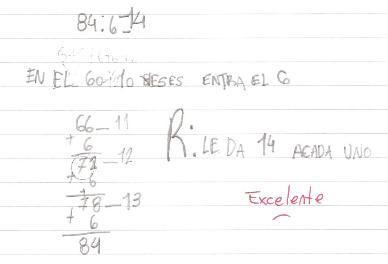 84:6=14
EN EL 60 10 VESES ENTRA EL 6
66-11
+6
72-12
+6
78-13
+6
84
R: LE DA 14 ACADA UNO
Excelente